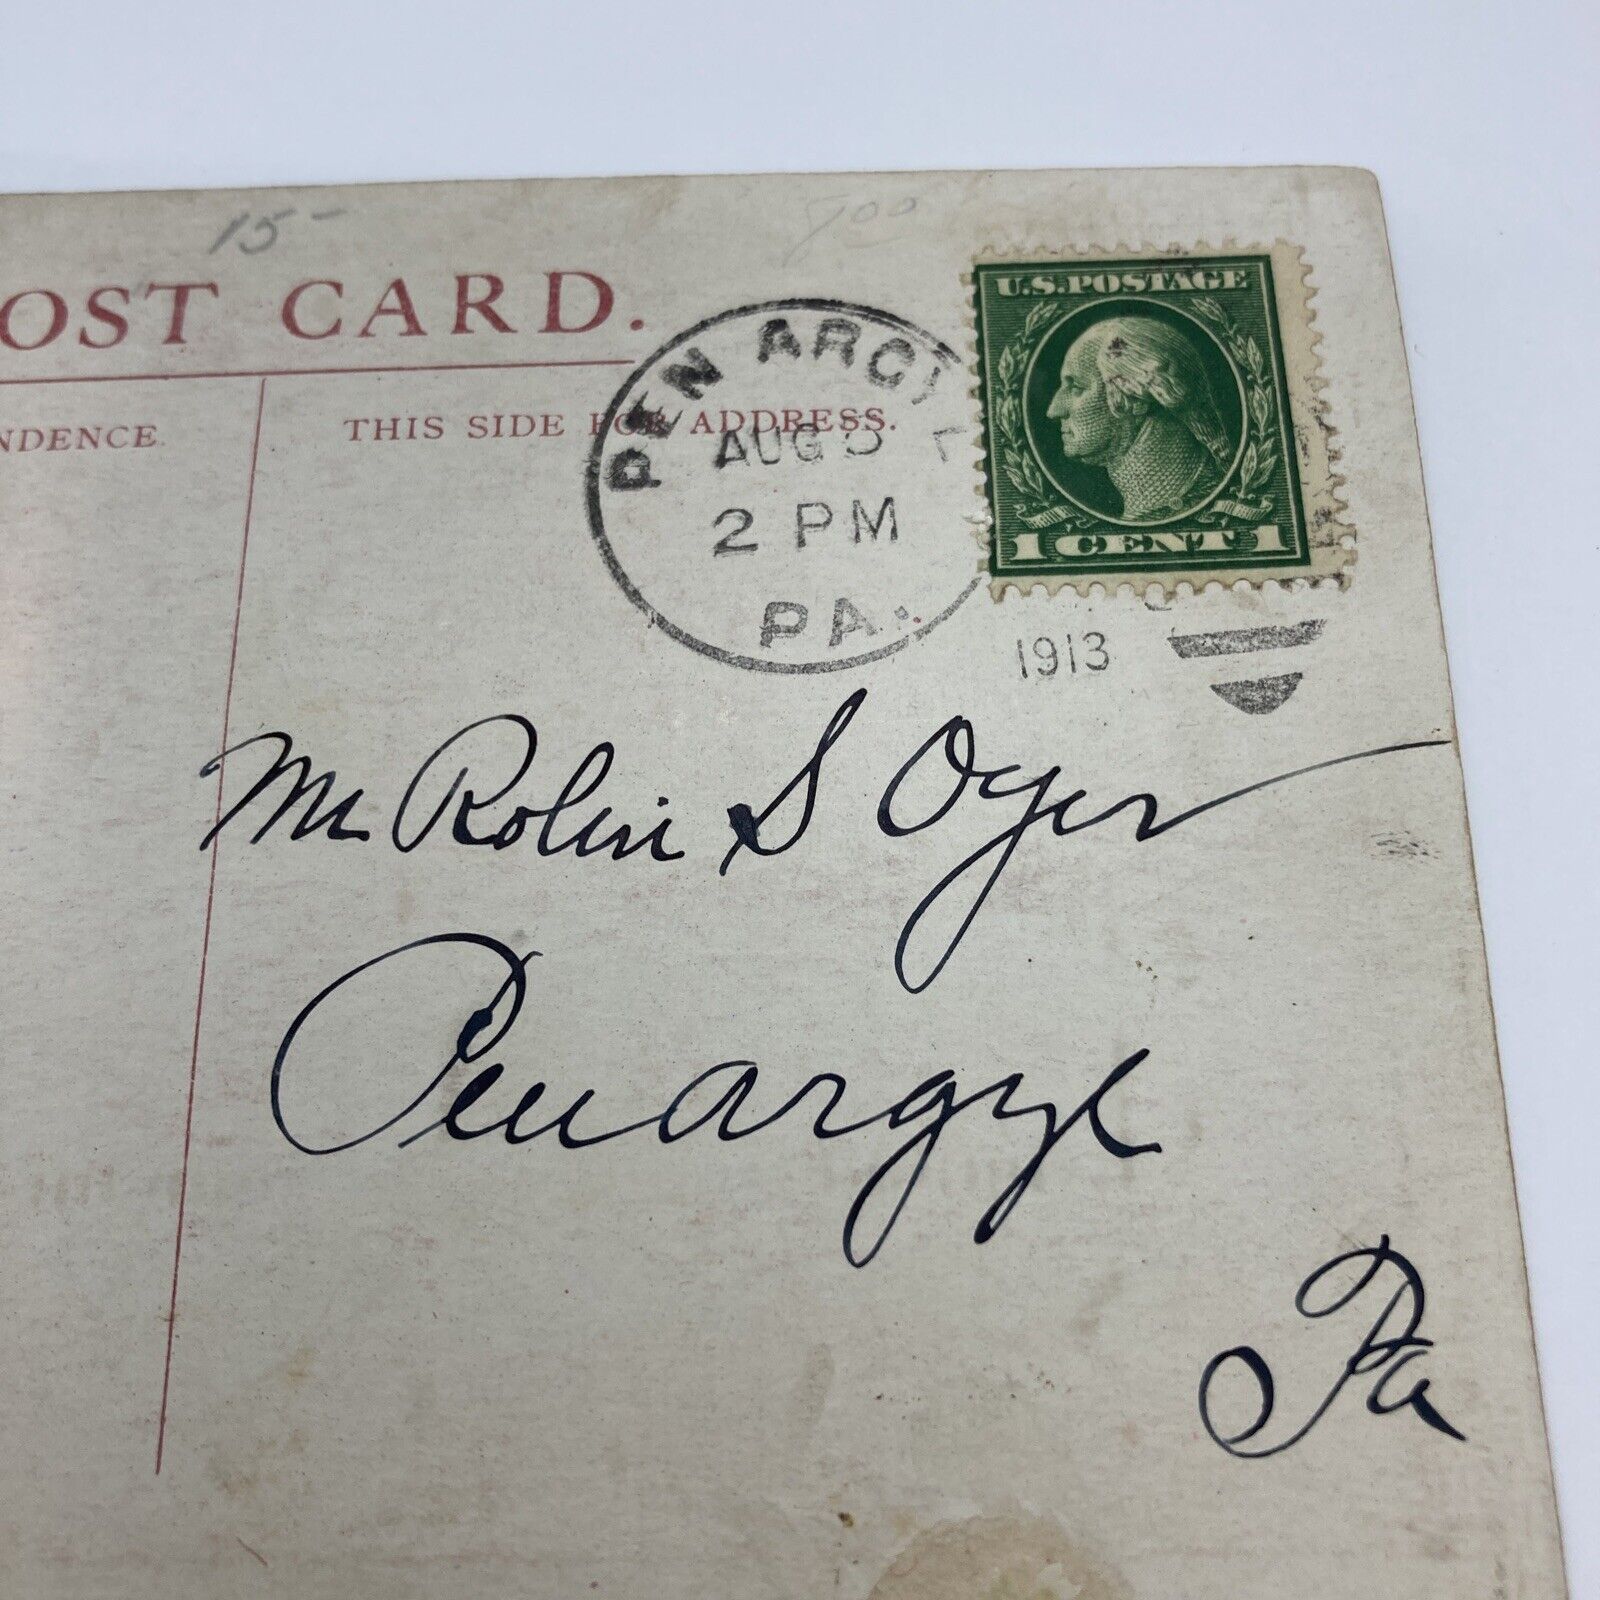 15-
OST CARD.
NDENCE.
THIS SIDE FOR ADDRESS.
PEN ARGYL
AUG 5
2 PM
PA.
1913
U.S. POSTAGE
1 CENT 1
Mr Robin S Oyer
Penargyl
Pa